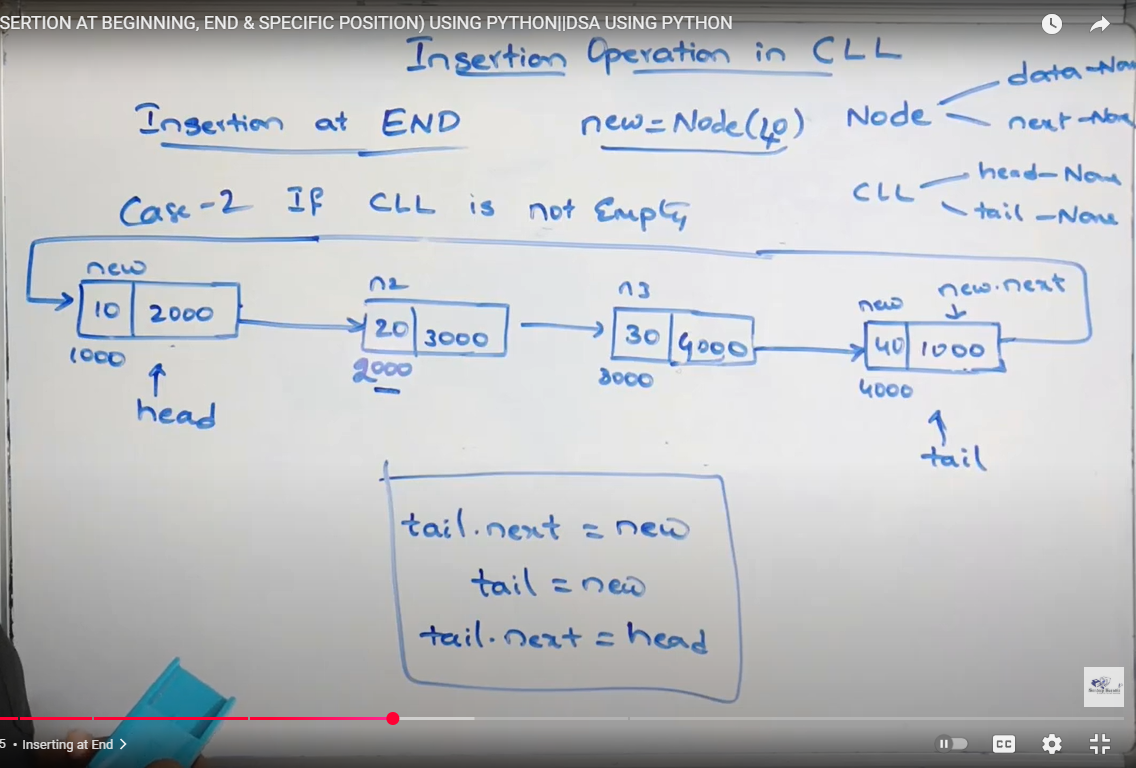 SERTION AT BEGINNING, END & SPECIFIC POSITION) USING PYTHON||DSA USING PYTHON
Insertion Operation in CLL
Insertion at END
new=Node(40)
Node
data-Non
next-Non
CLL
head-None
tail-None
Case-2 If CLL is not Empty
new
10 2000
1000
head
n2
20 3000
2000
n3
30 4000
3000
new
new.next
40 1000
4000
tail
tail.next = new
tail = new
tail.next = head
5 • Inserting at End
CC